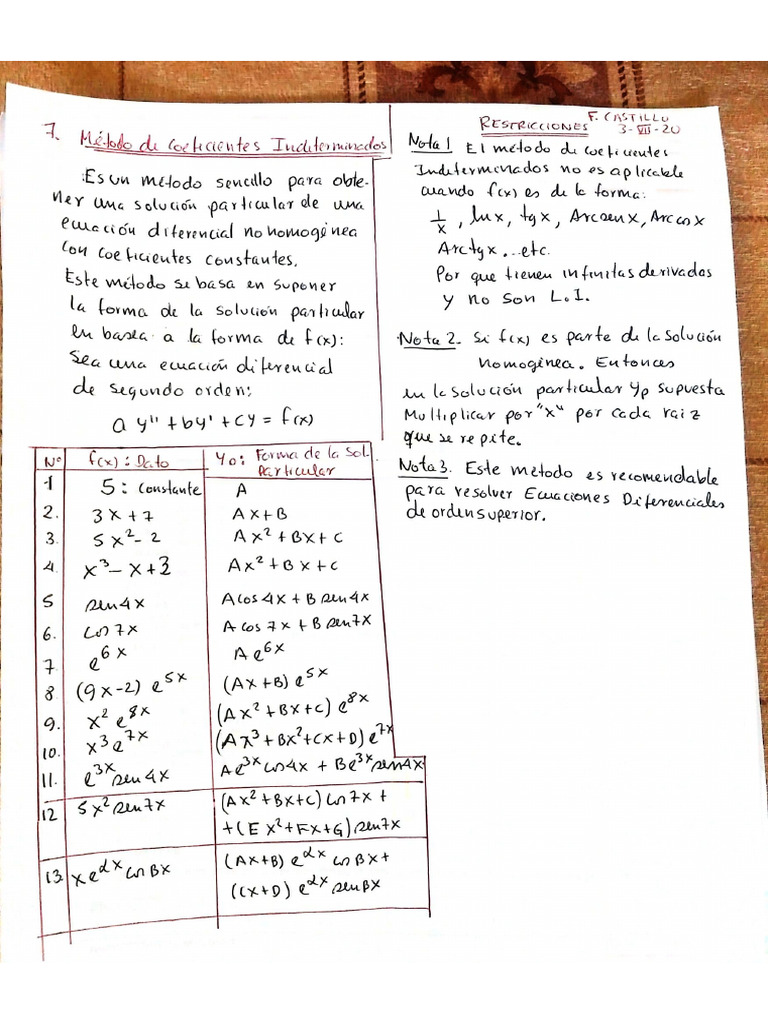 7. Método de Coeficientes Indeterminados
Es un método sencillo para obte-
ner una solución particular de una
ecuación diferencial no homogénea
con coeficientes constantes.
Este método se basa en suponer
la forma de la solución particular
en basea a la forma de f(x):
Sea una ecuación diferencial
de segundo orden:
a y'' + by' + cy = f(x)
Nº f(x): Dato Yo: Forma de la Sol. Particular
1 5: constante A
2. 3x+7 Ax+B
3. 5x²-2 Ax²+Bx+C
4. x³-x+3 Ax²+Bx+C
5 sen4x Acos4x + B sen4x
6. cos7x A cos 7x + B sen7x
7 e^6x A e^6x
8 (9x-2) e^5x (Ax+B) e^5x
9. x² e^8x (Ax²+Bx+C) e^8x
10. x³e^7x (Ax³+Bx²+Cx+D) e^7x
11. e^3x sen4x Ae^3x cos4x + Be^3x sen4x
12 5x²sen7x (Ax²+Bx+C) cos7x +
+(Ex²+Fx+G) sen7x
13. xe^αx cosβx (Ax+B) e^αx cosβx+
(Cx+D) e^αx senβx
RESTRICCIONES
F. CASTILLO
3-VII-20
Nota 1 El método de coeficientes
Indeterminados no es aplicable
cuando f(x) es de la forma:
1/x, lnx, tgx, Arcsenx, Arccosx
Arctgx...etc.
Por que tienen infinitas derivadas
y no son L.I.
Nota 2. Si f(x) es parte de la solución
homogénea. Entonces
en la solución particular yp supuesta
Multiplicar por "x" por cada raiz
que se repite.
Nota 3. Este método es recomendable
para resolver Ecuaciones Diferenciales
de orden superior.